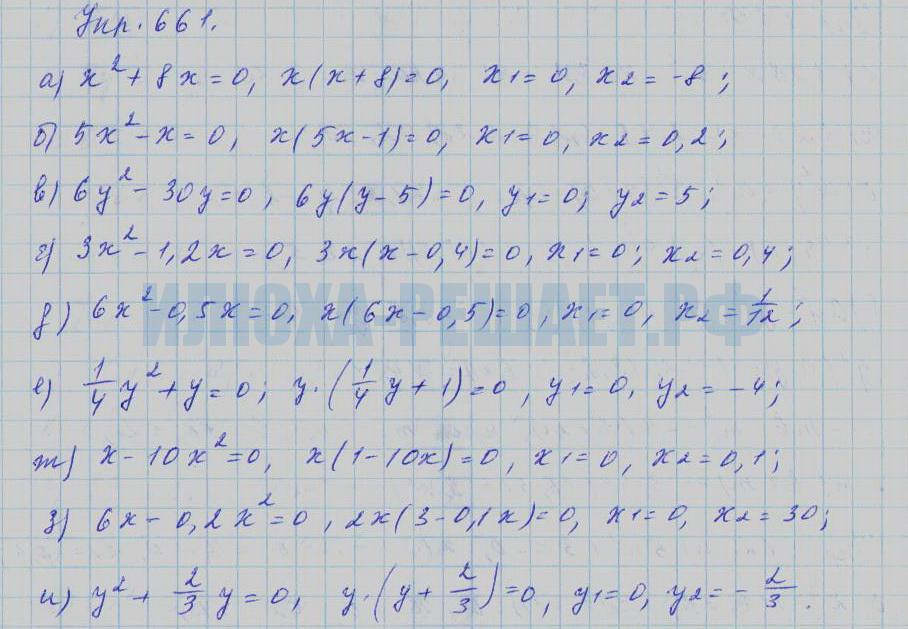 Упр. 661.
а) x² + 8x = 0, x(x + 8) = 0, x₁ = 0, x₂ = -8;
б) 5x² - x = 0, x(5x - 1) = 0, x₁ = 0, x₂ = 0,2;
в) 6y² - 30y = 0, 6y(y - 5) = 0, y₁ = 0; y₂ = 5;
г) 3x² - 1,2x = 0, 3x(x - 0,4) = 0, x₁ = 0; x₂ = 0,4;
д) 6x² - 0,5x = 0, x(6x - 0,5) = 0, x₁ = 0, x₂ = 1/12;
ИЛЮХА-РЕШАЕТ.РФ
е) 1/4 y² + y = 0; y·(1/4 y + 1) = 0, y₁ = 0, y₂ = -4;
ж) x - 10x² = 0, x(1 - 10x) = 0, x₁ = 0, x₂ = 0,1;
з) 6x - 0,2x² = 0, 2x(3 - 0,1x) = 0, x₁ = 0, x₂ = 30;
и) y² + 2/3 y = 0, y·(y + 2/3) = 0, y₁ = 0, y₂ = - 2/3.